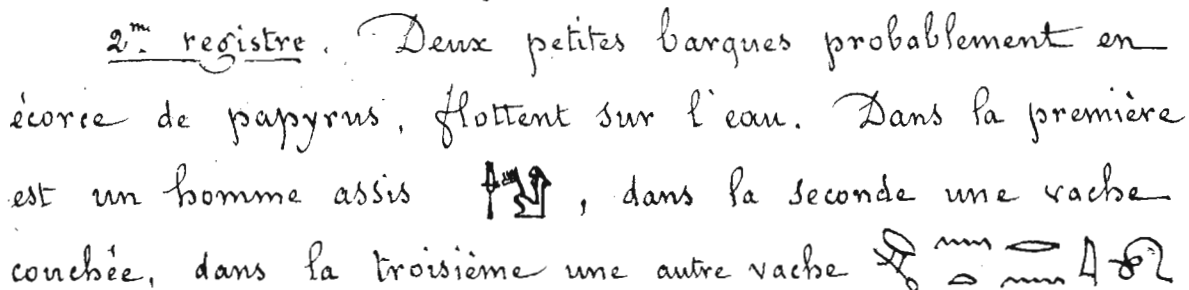 2me registre. Deux petites barques probablement en
écorce de papyrus, flottent sur l'eau. Dans la première
est un homme assis , dans la seconde une vache
couchée, dans la troisième une autre vache